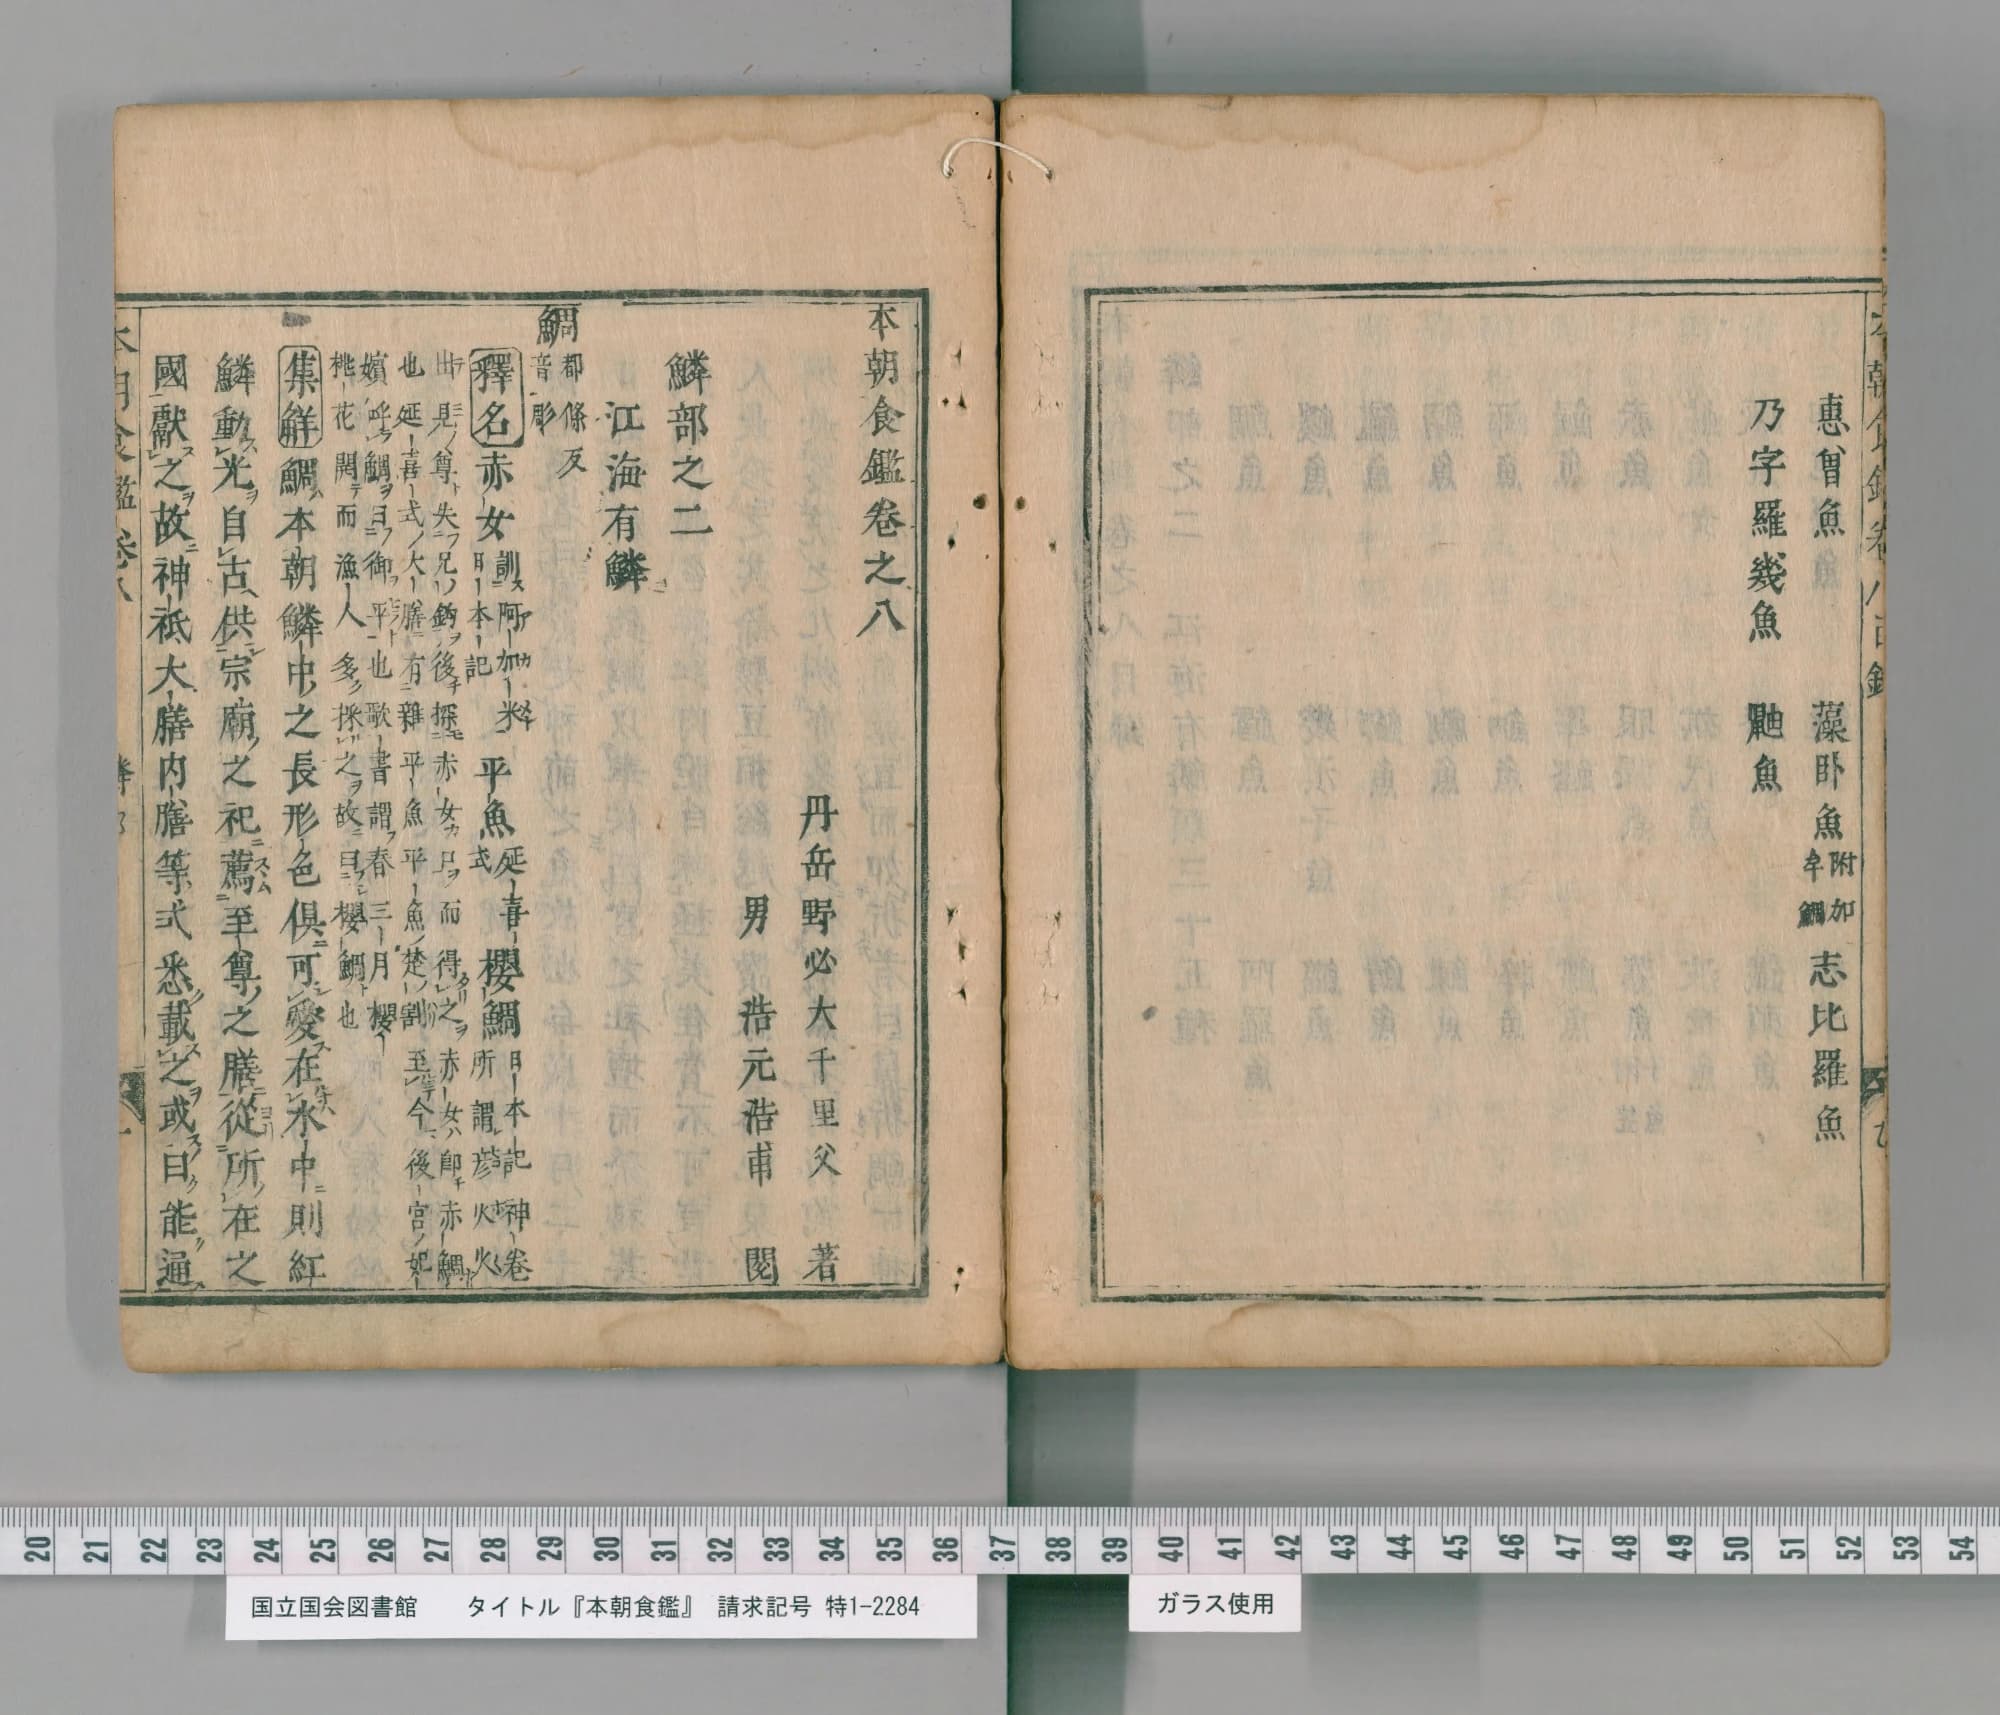 惠曾魚　藻卧魚附加牟鯛　志比羅魚
乃字羅幾魚　䱉魚
本朝食鑑卷之八
丹岳野必大千里父　著
男　浩元浩甫　閲
鱗部之二
江海有鱗
鯛都條反音彫
釋名赤女訓阿加米日本記　平魚延喜式　櫻鯛日本記神卷所謂彦火火
出見尊失兄鈎後探赤女口而得之赤女即赤鯛
也延喜式大膳有雜平魚平魚楚割至今後宮妃
嬪呼鯛曰御平也歌書謂春三月櫻
桃花開而漁人多採之故曰櫻鯛也
集解鯛本朝鱗中之長形色倶可愛在水中則紅
鱗動光自古供宗廟之祀薦至尊之膳從所在之
國獻之故神祇大膳内膳等式悉載之或曰能通
本朝食鑑卷八
国立国会図書館　タイトル『本朝食鑑』　請求記号　特1-2284
ガラス使用
20 21 22 23 24 25 26 27 28 29 30 31 32 33 34 35 36 37 38 39 40 41 42 43 44 45 46 47 48 49 50 51 52 53 54